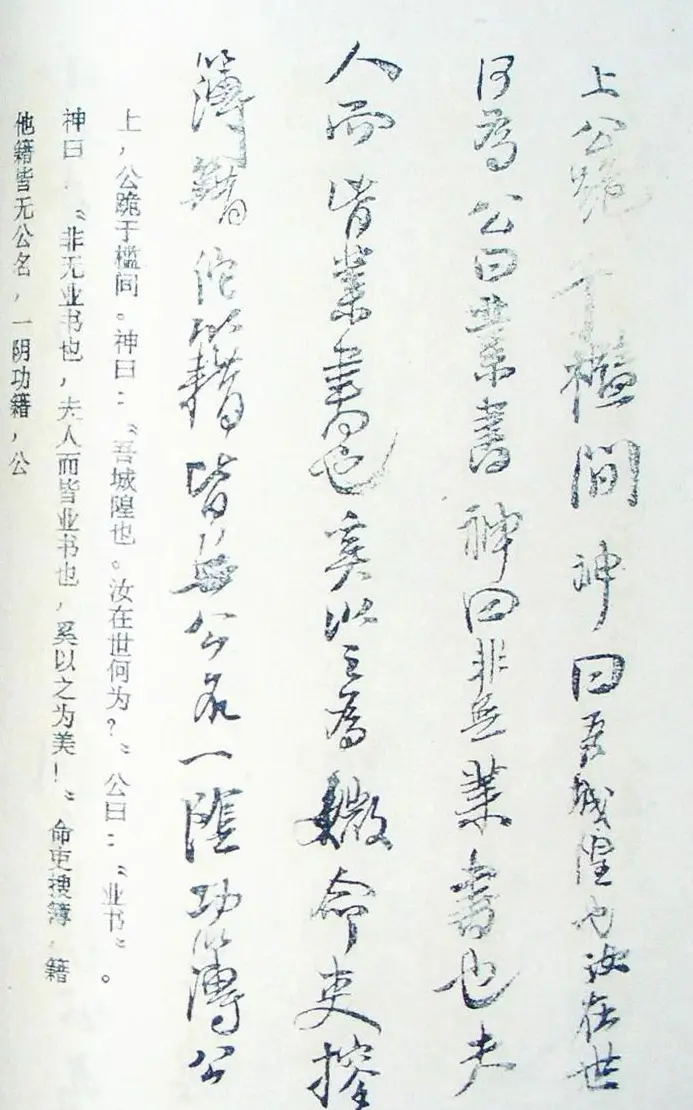 上公跪于檻間神曰吾城隍也汝在世
何為公曰業書神曰非無業書也夫
人而皆業書也奚以之為媺命吏搜
簿籍佗籍皆無公名一陰功簿公
上，公跪于槛间。神曰：“吾城隍也。汝在世何为？”公曰：“业书”。
神曰：“非无业书也，夫人而皆业书也，奚以之为美！”命吏搜簿、籍
他籍皆无公名，一阴功籍，公